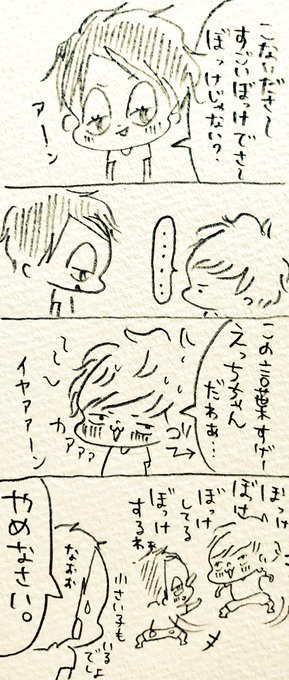 こないださ～
すごいぼっけでさ～
ぼっけじゃない？
アーン
・・・・・
この言葉すげー
えっちぃん
だわぁ…
イヤァァーン
カアァァ
ぼっけ
ぼっけ
ぼっけ
してる
ぼっけ
するわぁ
小さい子も
いる
でしょ
なおお
やめなさい。